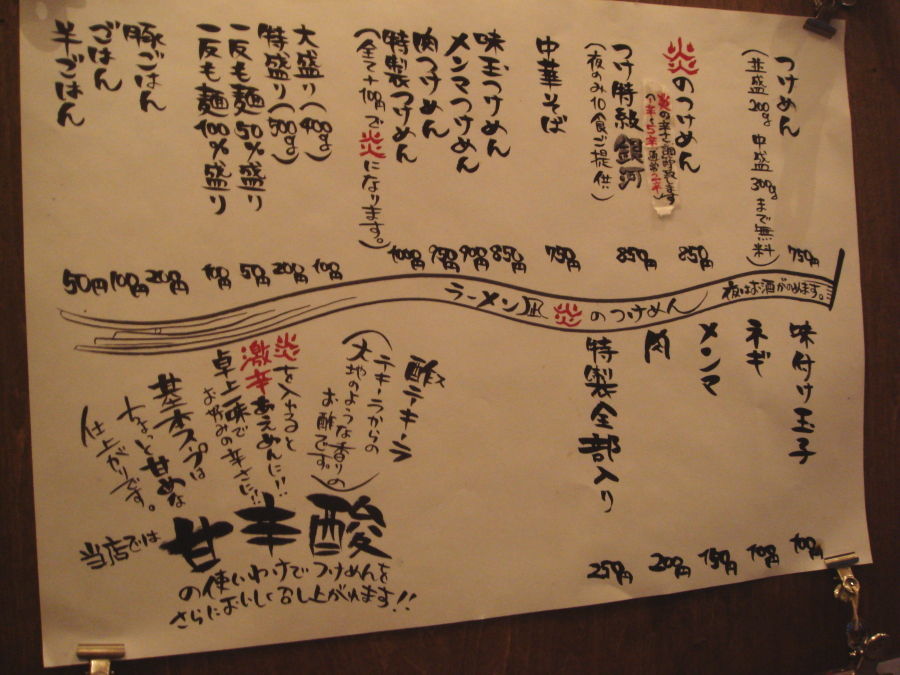 つけめん
(並盛200g 中盛300gまで無料)
750円
炎のつけめん
850円
つけ特級 銀河
(夜のみ10食ご提供)
850円
中華そば
750円
味玉つけめん
850円
メンマつけめん
900円
肉つけめん
950円
特製つけめん
1000円
(全て+100円で炎になります。)
大盛り(400g)
100円
特盛り(500g)
200円
一反も麺50%盛り
50円
一反も麺100%盛り
100円
豚ごはん
200円
ごはん
100円
半ごはん
50円
ラーメン凪 炎のつけめん
夜はお酒がのめます。
味付け玉子
100円
ネギ
100円
メンマ
150円
肉
200円
特製全部入り
250円
酢テキーラ
(テキーラからの
大地のような香りの
お酢です。)
炎を入れると
激辛あえめんに!!
卓上一味で
お好みの辛さに!!
基本スープは
ちょっと甘めな
仕上がりです。
当店では
甘辛酸
の使いわけでつけめんを
さらにおいしく召し上がれます!!